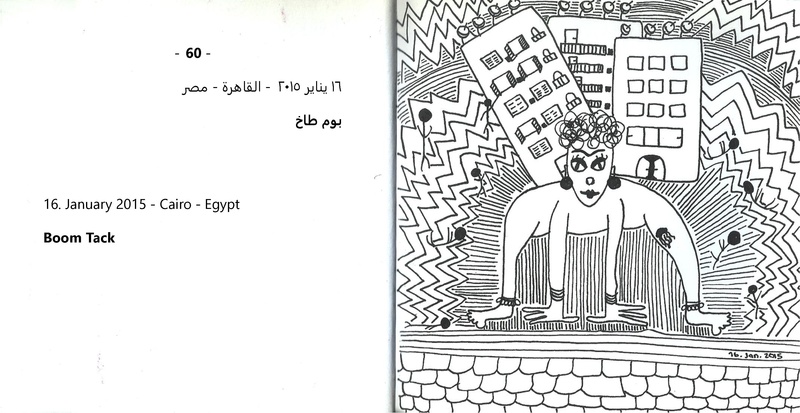 - 60 -
١٦ يناير ٢٠١٥ - القاهرة - مصر
بوم طاخ
16. January 2015 - Cairo - Egypt
Boom Tack
16. Jan. 2015